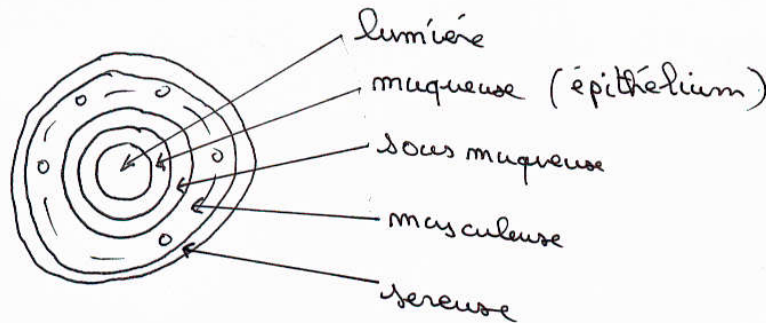 lumière
muqueuse (épithélium)
sous muqueuse
musculeuse
sereuse